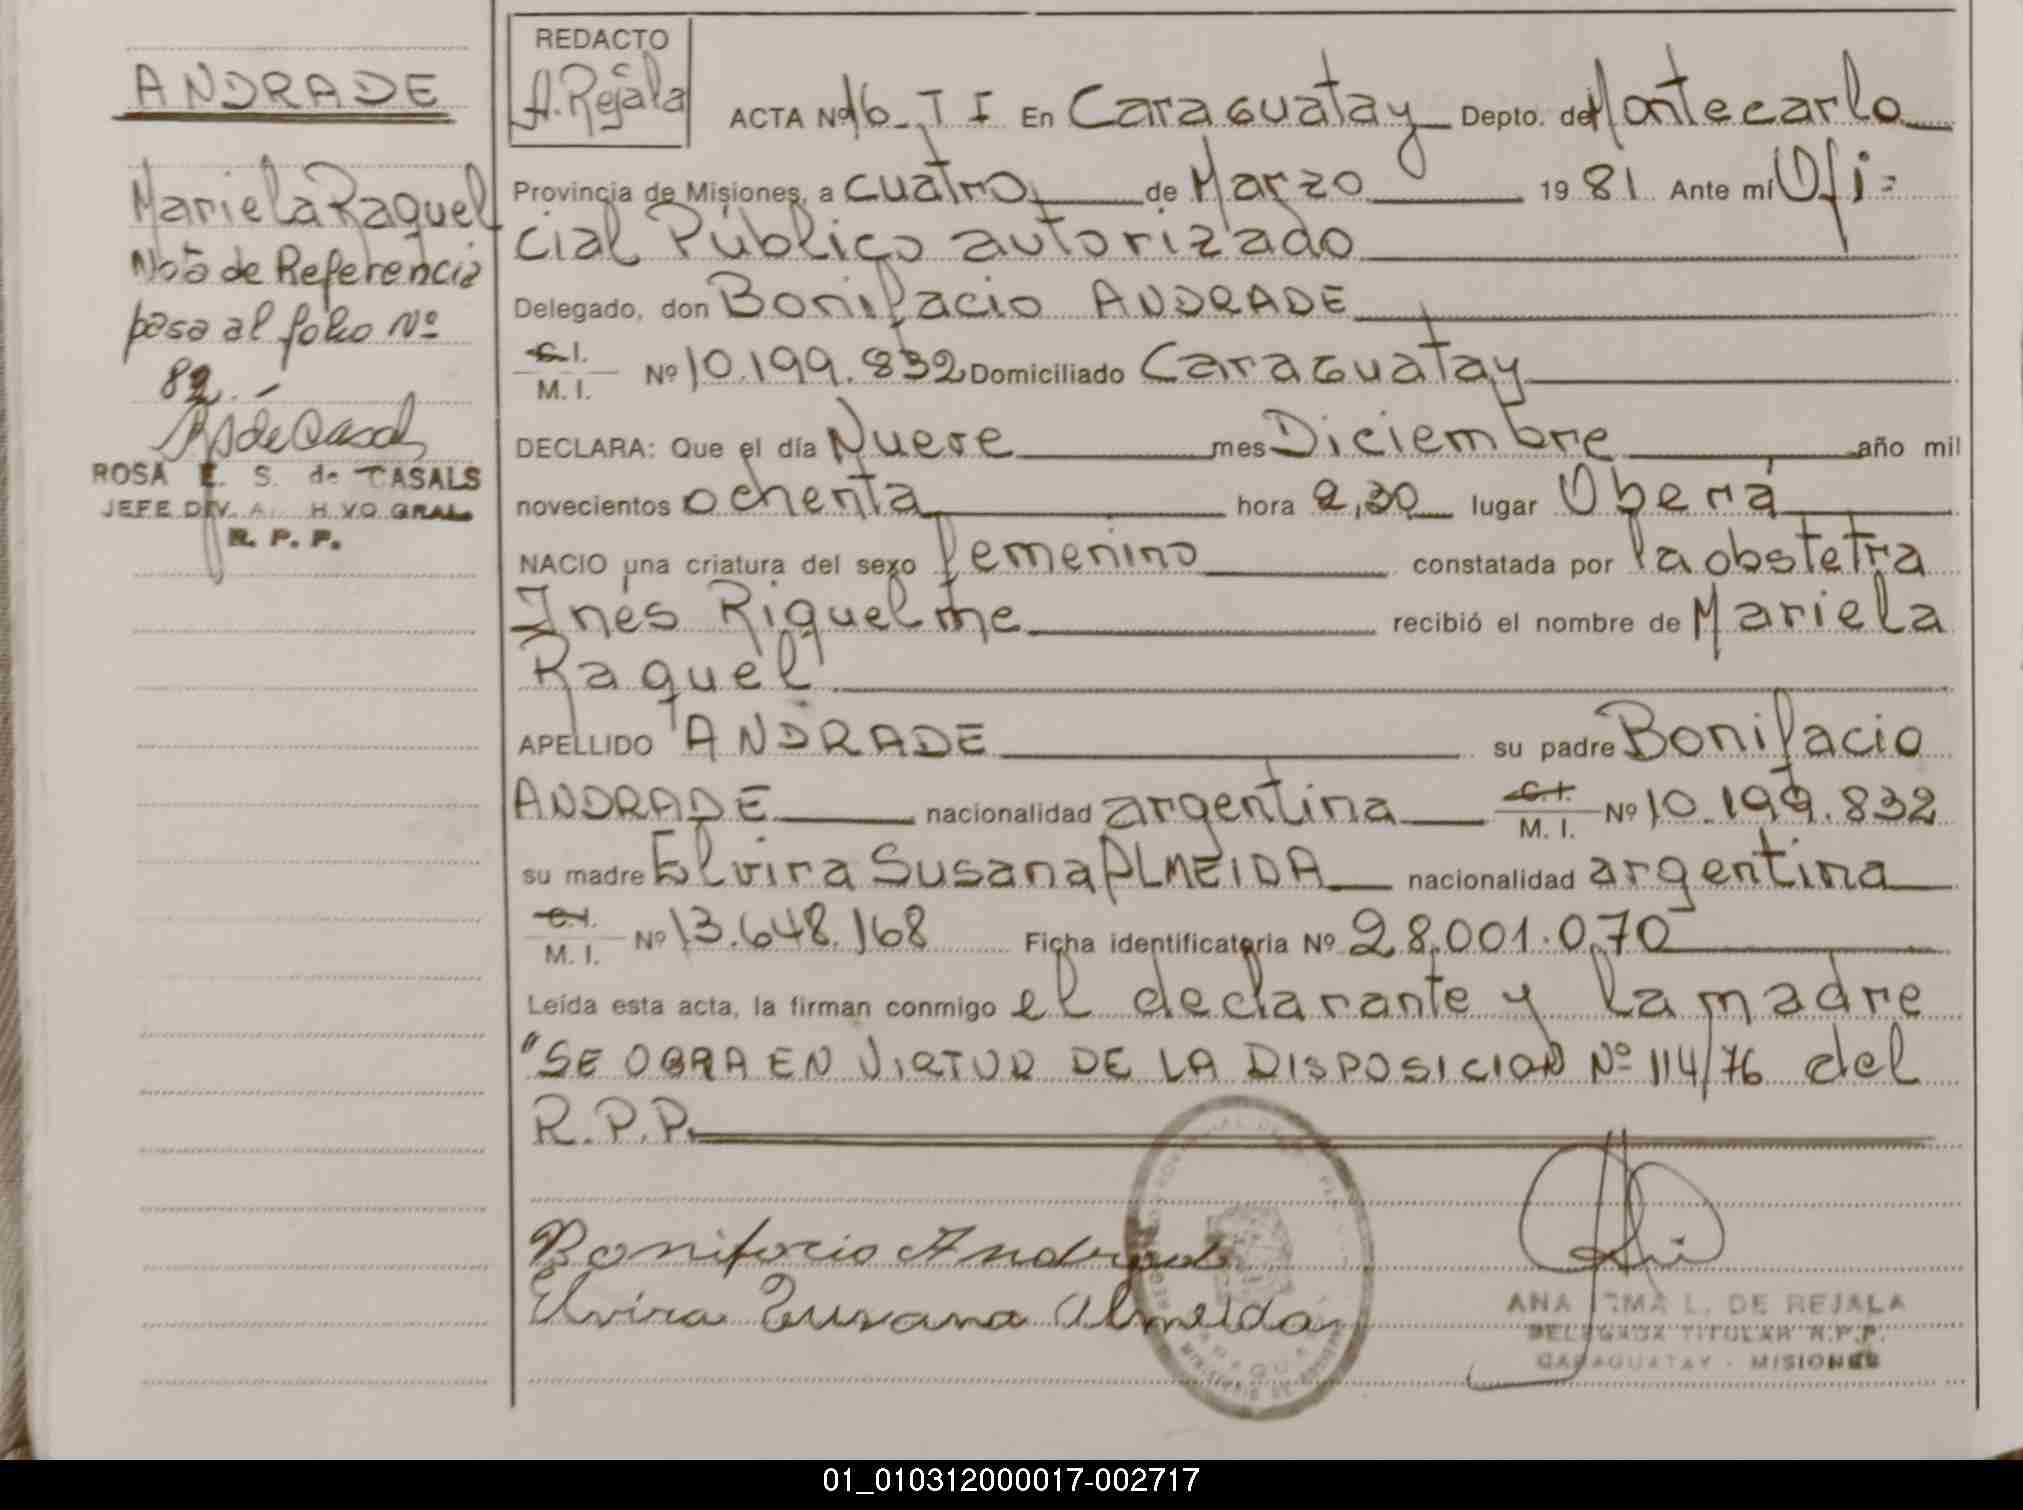 ANDRADE
Mariela Raquel
Nota de Referencia
pasa al folio Nº
82.-
ROSA E. S. de CASALS
JEFE DIV. A. H VO GRAL.
R. P. P.
REDACTO
A. Rejala
ACTA Nº 16 - T I En Caraguatay Depto. de Montecarlo
Provincia de Misiones, a cuatro de Marzo 1981 Ante mí Ofi=
cial Público autorizado
Delegado, don Bonifacio ANDRADE
C.I. M. I. Nº 10.199.832 Domiciliado Caraguatay
DECLARA: Que el día Nueve mes Diciembre año mil
novecientos ochenta hora 2,30 lugar Oberá
NACIO una criatura del sexo femenino constatada por la obstetra
Inés Riquelme recibió el nombre de Mariela
Raquel
APELLIDO ANDRADE su padre Bonifacio
ANDRADE nacionalidad argentina C.I. M. I. Nº 10.199.832
su madre Elvira Susana ALMEIDA nacionalidad argentina
C.I. M. I. Nº 13.648.168 Ficha identificatoria Nº 28.001.070
Leída esta acta, la firman conmigo el declarante y la madre
"SE OBRA EN VIRTUD DE LA DISPOSICION Nº 114/76 del
R.P.P.
Bonifacio Andrade
Elvira Susana Almeida
ANA IRMA L. DE REJALA
DELEGADA TITULAR R.P.P.
CARAGUATAY - MISIONES
01_010312000017-002717